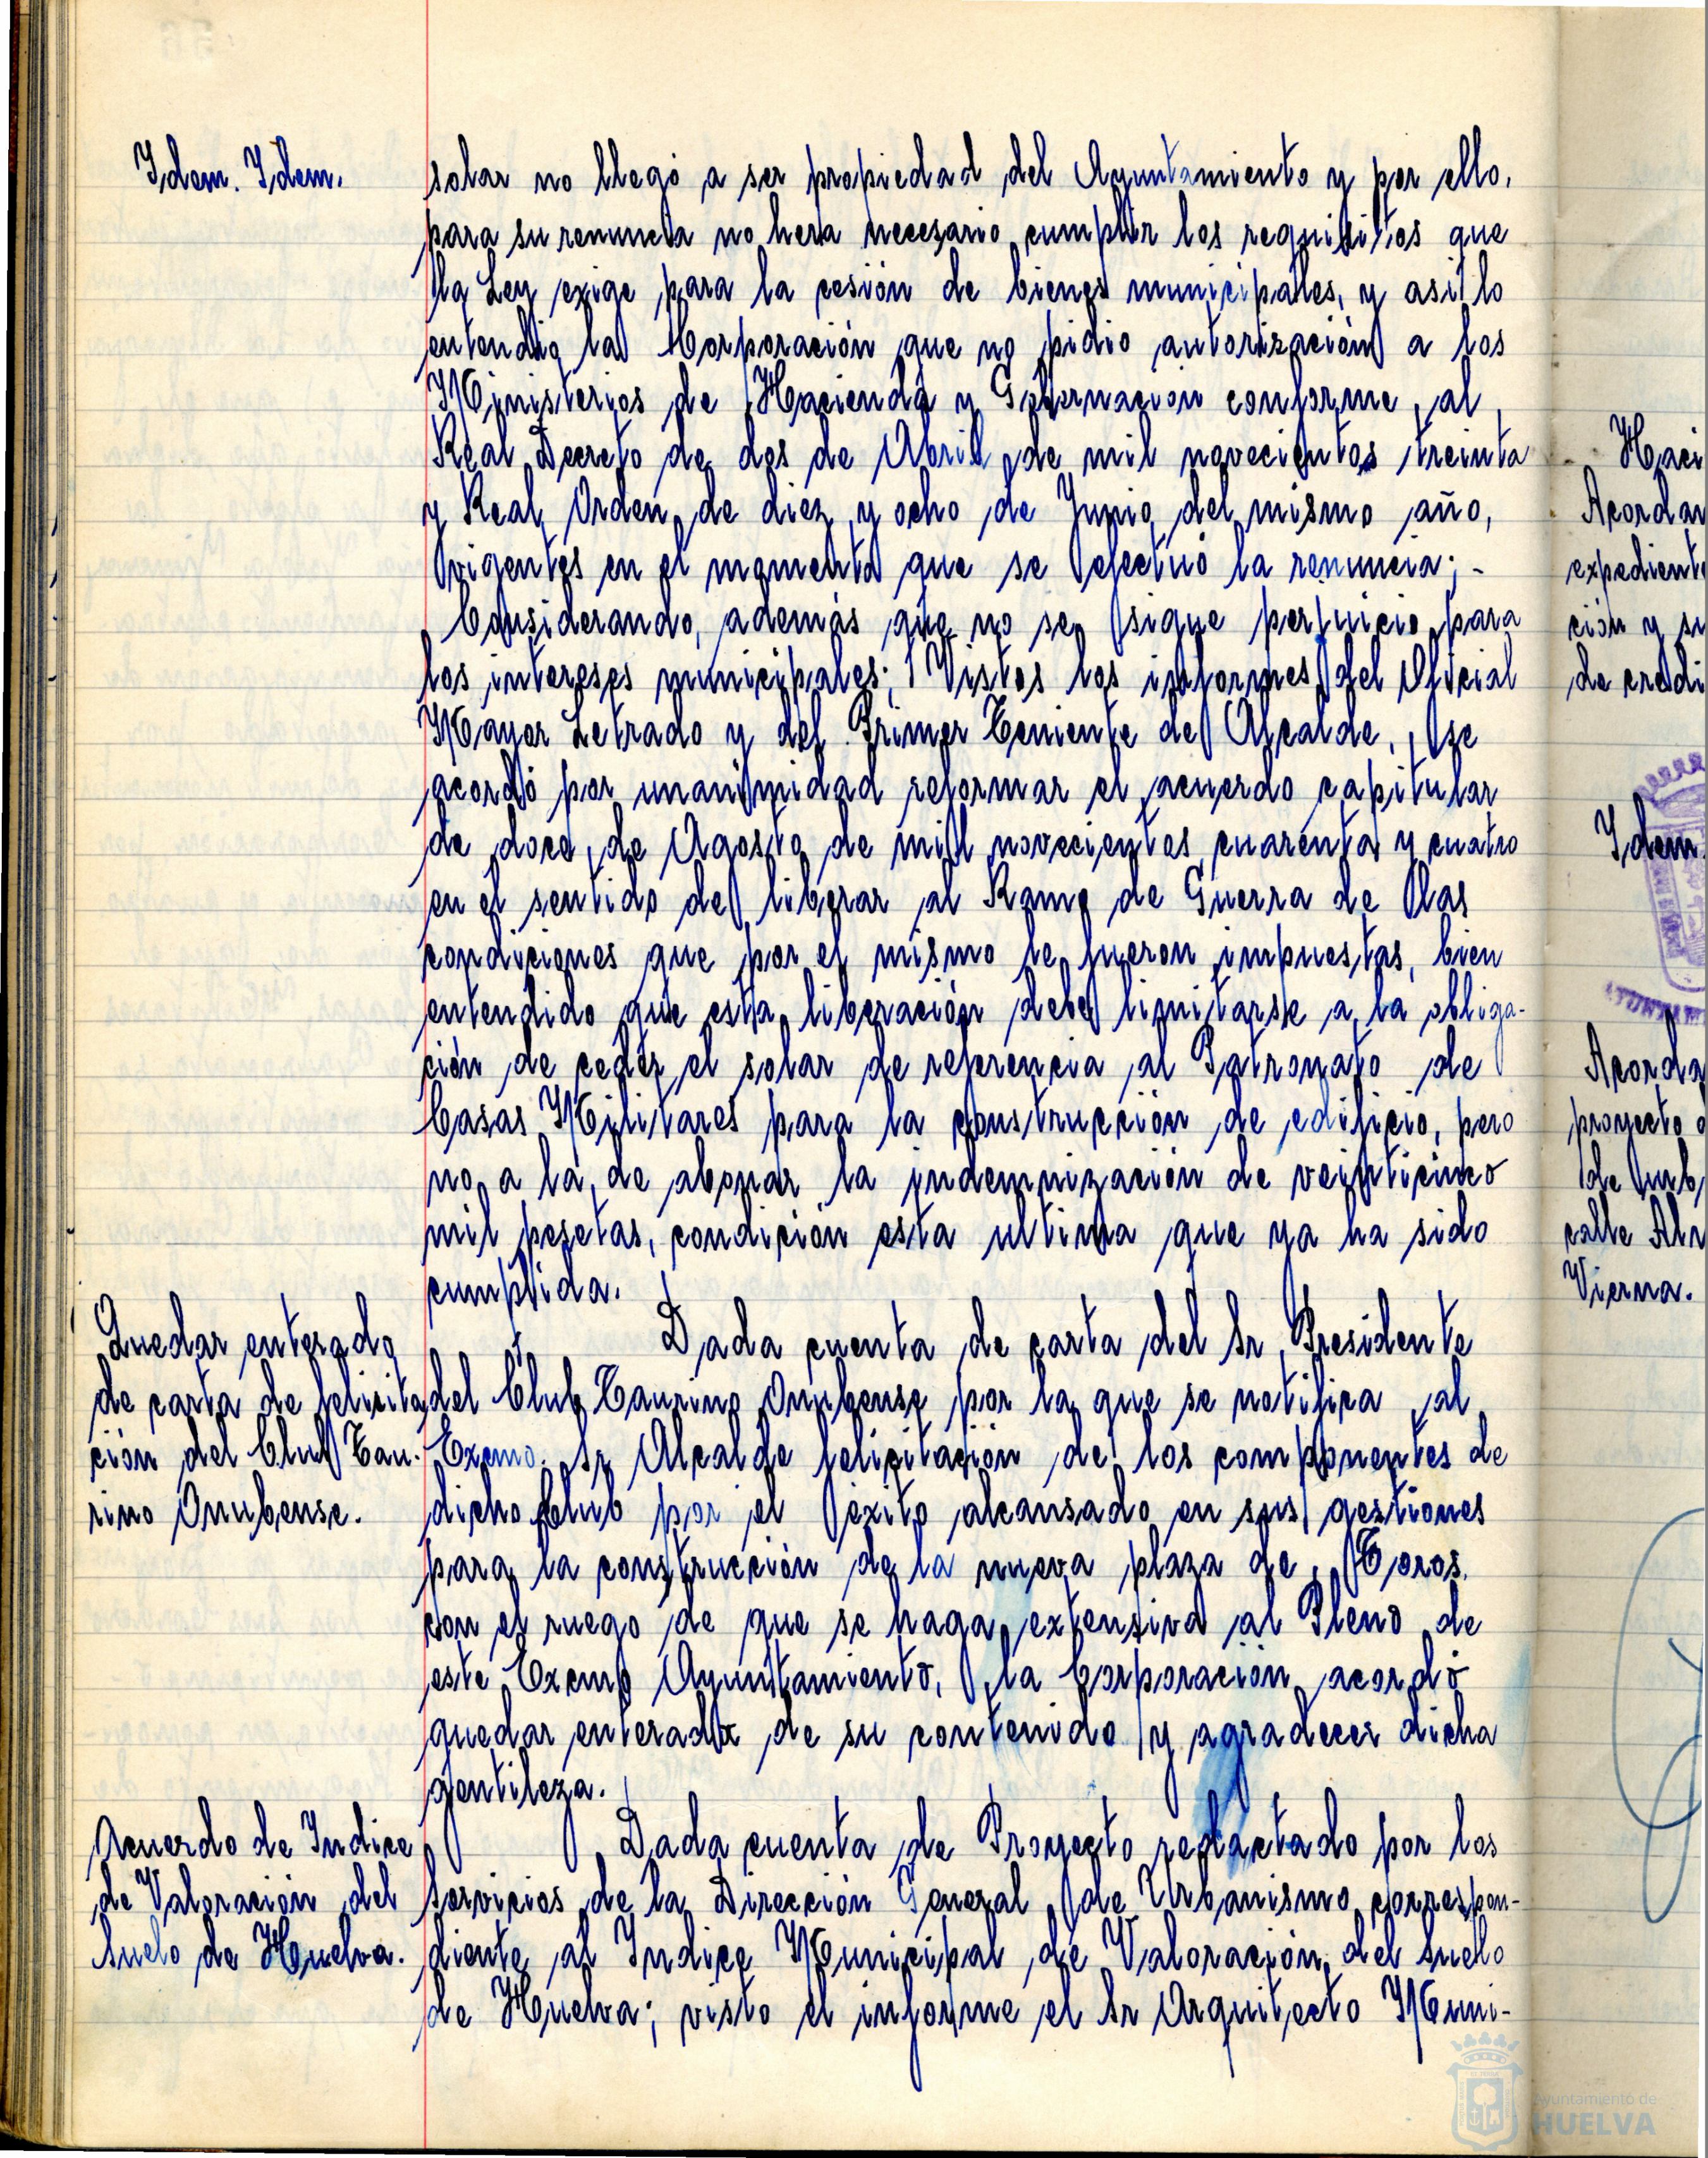 Idem. Idem.
solar no llegó a ser propiedad del Ayuntamiento y por ello,
para su renuncia no hera necesario cumplir los requisitos que
la Ley exige para la cesión de bienes municipales, y asi lo
entendio la Corporación que no pidio autorización a los
Ministerios de Hacienda y Gobernación conforme al
Real Decreto de dos de Abril de mil novecientos treinta
y Real Orden de diez y ocho de Junio del mismo año,
vigentes en el momento que se efectuó la renuncia; -
Considerando, además que no se sigue perjuicio para
los intereses municipales; Vistos los informes del Oficial
Mayor Letrado y del Primer Teniente de Alcalde, se
acordó por unanimidad reformar el acuerdo capitular
de doce de Agosto de mil novecientos cuarenta y cuatro
en el sentido de liberar al Ramo de Guerra de las
condiciones que por el mismo le fueron impuestas, bien
entendido que esta liberación debe limitarse a la obliga-
ción de ceder el solar de referencia al Patronato de
Casas Militares para la construcción de edificio, pero
no a la de abonar la indemnización de veinticinco
mil pesetas, condición esta ultima que ya ha sido
cumplida.
Quedar enterado
de carta de felicita
ción del Club Tau-
rino Onubense.
Dada cuenta de carta del Sr Presidente
del Club Taurino Onubense por la que se notifica al
Excmo. Sr Alcalde felicitación de los componentes de
dicho Club por el éxito alcansado en sus gestiones
para la construcción de la nueva plaza de Toros,
con el ruego de que se haga extensiva al Pleno de
este Excmo Ayuntamiento, la Corporación acordó
quedar enterada de su contenido y agradecer dicha
gentileza.
Acuerdo de Indice
de Valoración del
Suelo de Huelva.
Dada cuenta de Proyecto redactado por los
servicios de la Dirección General de Urbanismo correspon-
diente al Indice Municipal de Valoración del Suelo
de Huelva; visto el informe el Sr Arquitecto Muni-
Haci
Acordar
expediente
ción y su
de credi
Idem
Acorda
proyecto
de Urb
calle
Vierna.
Ayuntamiento de
HUELVA